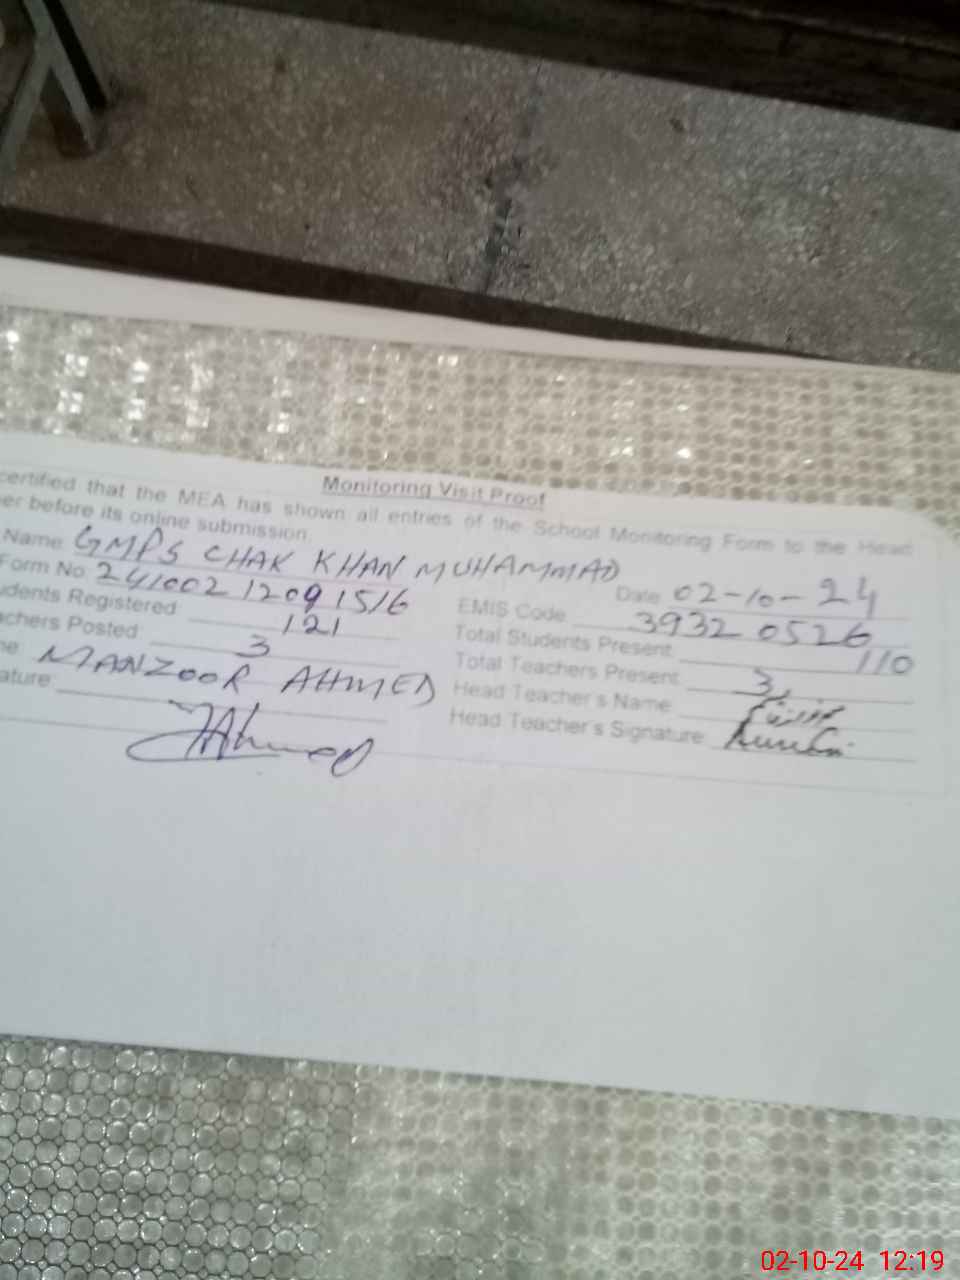 Monitoring Visit Proof
certified that the MEA has shown all entries of the School Monitoring Form to the Head
er before its online submission.
Name GMPS CHAK KHAN MUHAMMAD
Date 02-10-24
Form No. 241002 12091516 EMIS Code 39320526
udents Registered 121 Total Students Present 110
achers Posted 3 Total Teachers Present 3
me: MANZOOR AHMED Head Teacher's Name
ature: Head Teacher's Signature
02-10-24 12:19